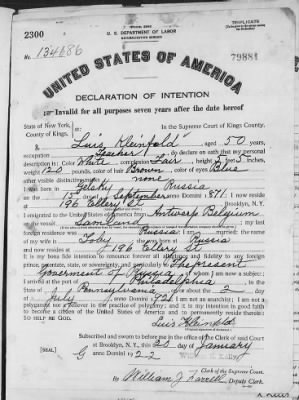 2300
U. S. DEPARTMENT OF LABOR
NATURALIZATION SERVICE
TRIPLICATE
No. 134686
79881
UNITED STATES OF AMERICA
DECLARATION OF INTENTION
Invalid for all purposes seven years after the date hereof
State of New York,
County of Kings,
In the Supreme Court of Kings County.
I, Luis Kleinfold, aged 50 years,
occupation Teacher, do declare on oath that my personal
description is: Color White, complexion Fair, height 5 feet inches,
weight 120 pounds, color of hair Brown, color of eyes Blue
other visible distinctive marks none
I was born in Russia
on the 15 day of September, anno Domini 1871; I now reside
at 196 Ellery St, Brooklyn, N.Y.
I emigrated to the United States of America from Antwerp Belgium
on the vessel; my last
foreign residence was Russia; I am married; the name
of my wife is; she was born at Russia
and now resides at 196 Ellery St
It is my bona fide intention to renounce forever all allegiance and fidelity to any foreign
prince, potentate, state, or sovereignty, and particularly to The present
Government of Russia, of whom I am now a subject;
I arrived at the port of Philadelphia, in the
State of Pennsylvania, on or about the 2 day
of July, anno Domini 1921; I am not an anarchist; I am not a
polygamist nor a believer in the practice of polygamy; and it is my intention in good faith
to become a citizen of the United States of America and to permanently reside therein:
SO HELP ME GOD.
Luis Kleinfold
Subscribed and sworn to before me in the office of the Clerk of said Court
at Brooklyn, N.Y., this 25 day of January
[SEAL] anno Domini 1922
Clerk of the Supreme Court.
By William J Farrell, Deputy Clerk.